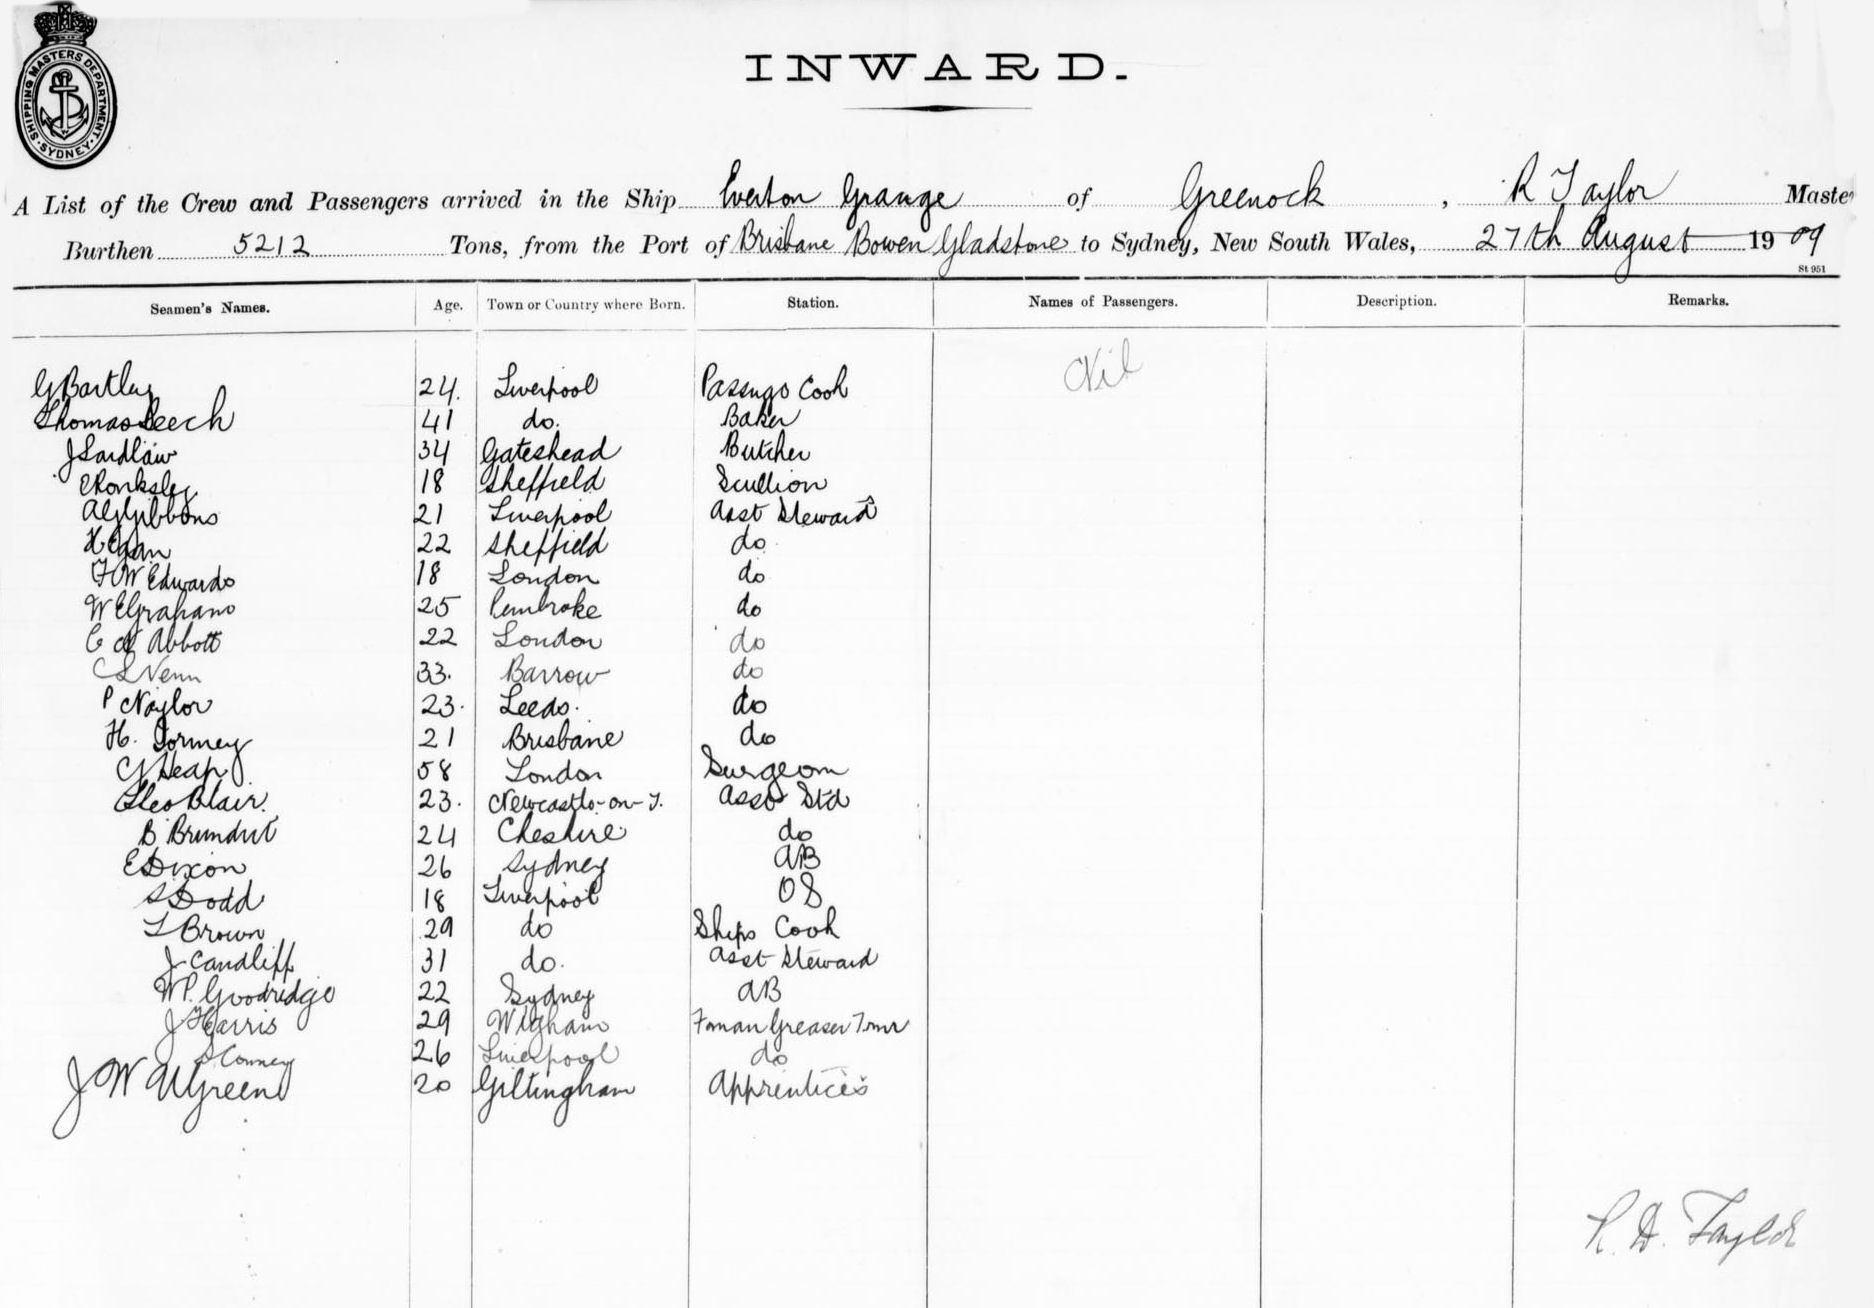 SHIPPING MASTERS DEPARTMENT · SYDNEY ·
INWARD.
A List of the Crew and Passengers arrived in the Ship Everton Grange of Greenock, R Taylor Master
Burthen 5212 Tons, from the Port of Brisbane Bowen Gladstone to Sydney, New South Wales, 27th August 1909
St 951
Seamen's Names. Age. Town or Country where Born. Station. Names of Passengers. Description. Remarks.
Nil
G Bartley 24. Liverpool Passngs Cook
Thomas Leech 41 do. Baker
J Laidlaw 34 Gateshead Butcher
E Ronksley 18 Sheffield Scullion
A G Gibbons 21 Liverpool Asst Steward
H Egan 22 Sheffield do
F W Edwards 18 London do
W E Graham 25 Pembroke do
C Abbott 22 London do
C S Venn 33. Barrow do
P Naylor 23. Leeds. do
H. Tormey 21 Brisbane do
C J Heap 58 London Surgeon
Geo Blair. 23. Newcastle-on-T. Asst Std
B 24 Cheshire do
E Dixon 26 Sydney AB
S Dodd 18 Liverpool OS
T Brown 29 do Ships Cook
J Candliff 31 do. Asst Steward
W P. Goodridge 22 Sydney AB
J Harris 29 Wigham Fman Greaser Tmr
S Conney 26 Liverpool do
J W A Green 20 Giltingham Apprentices
R. D. Taylor